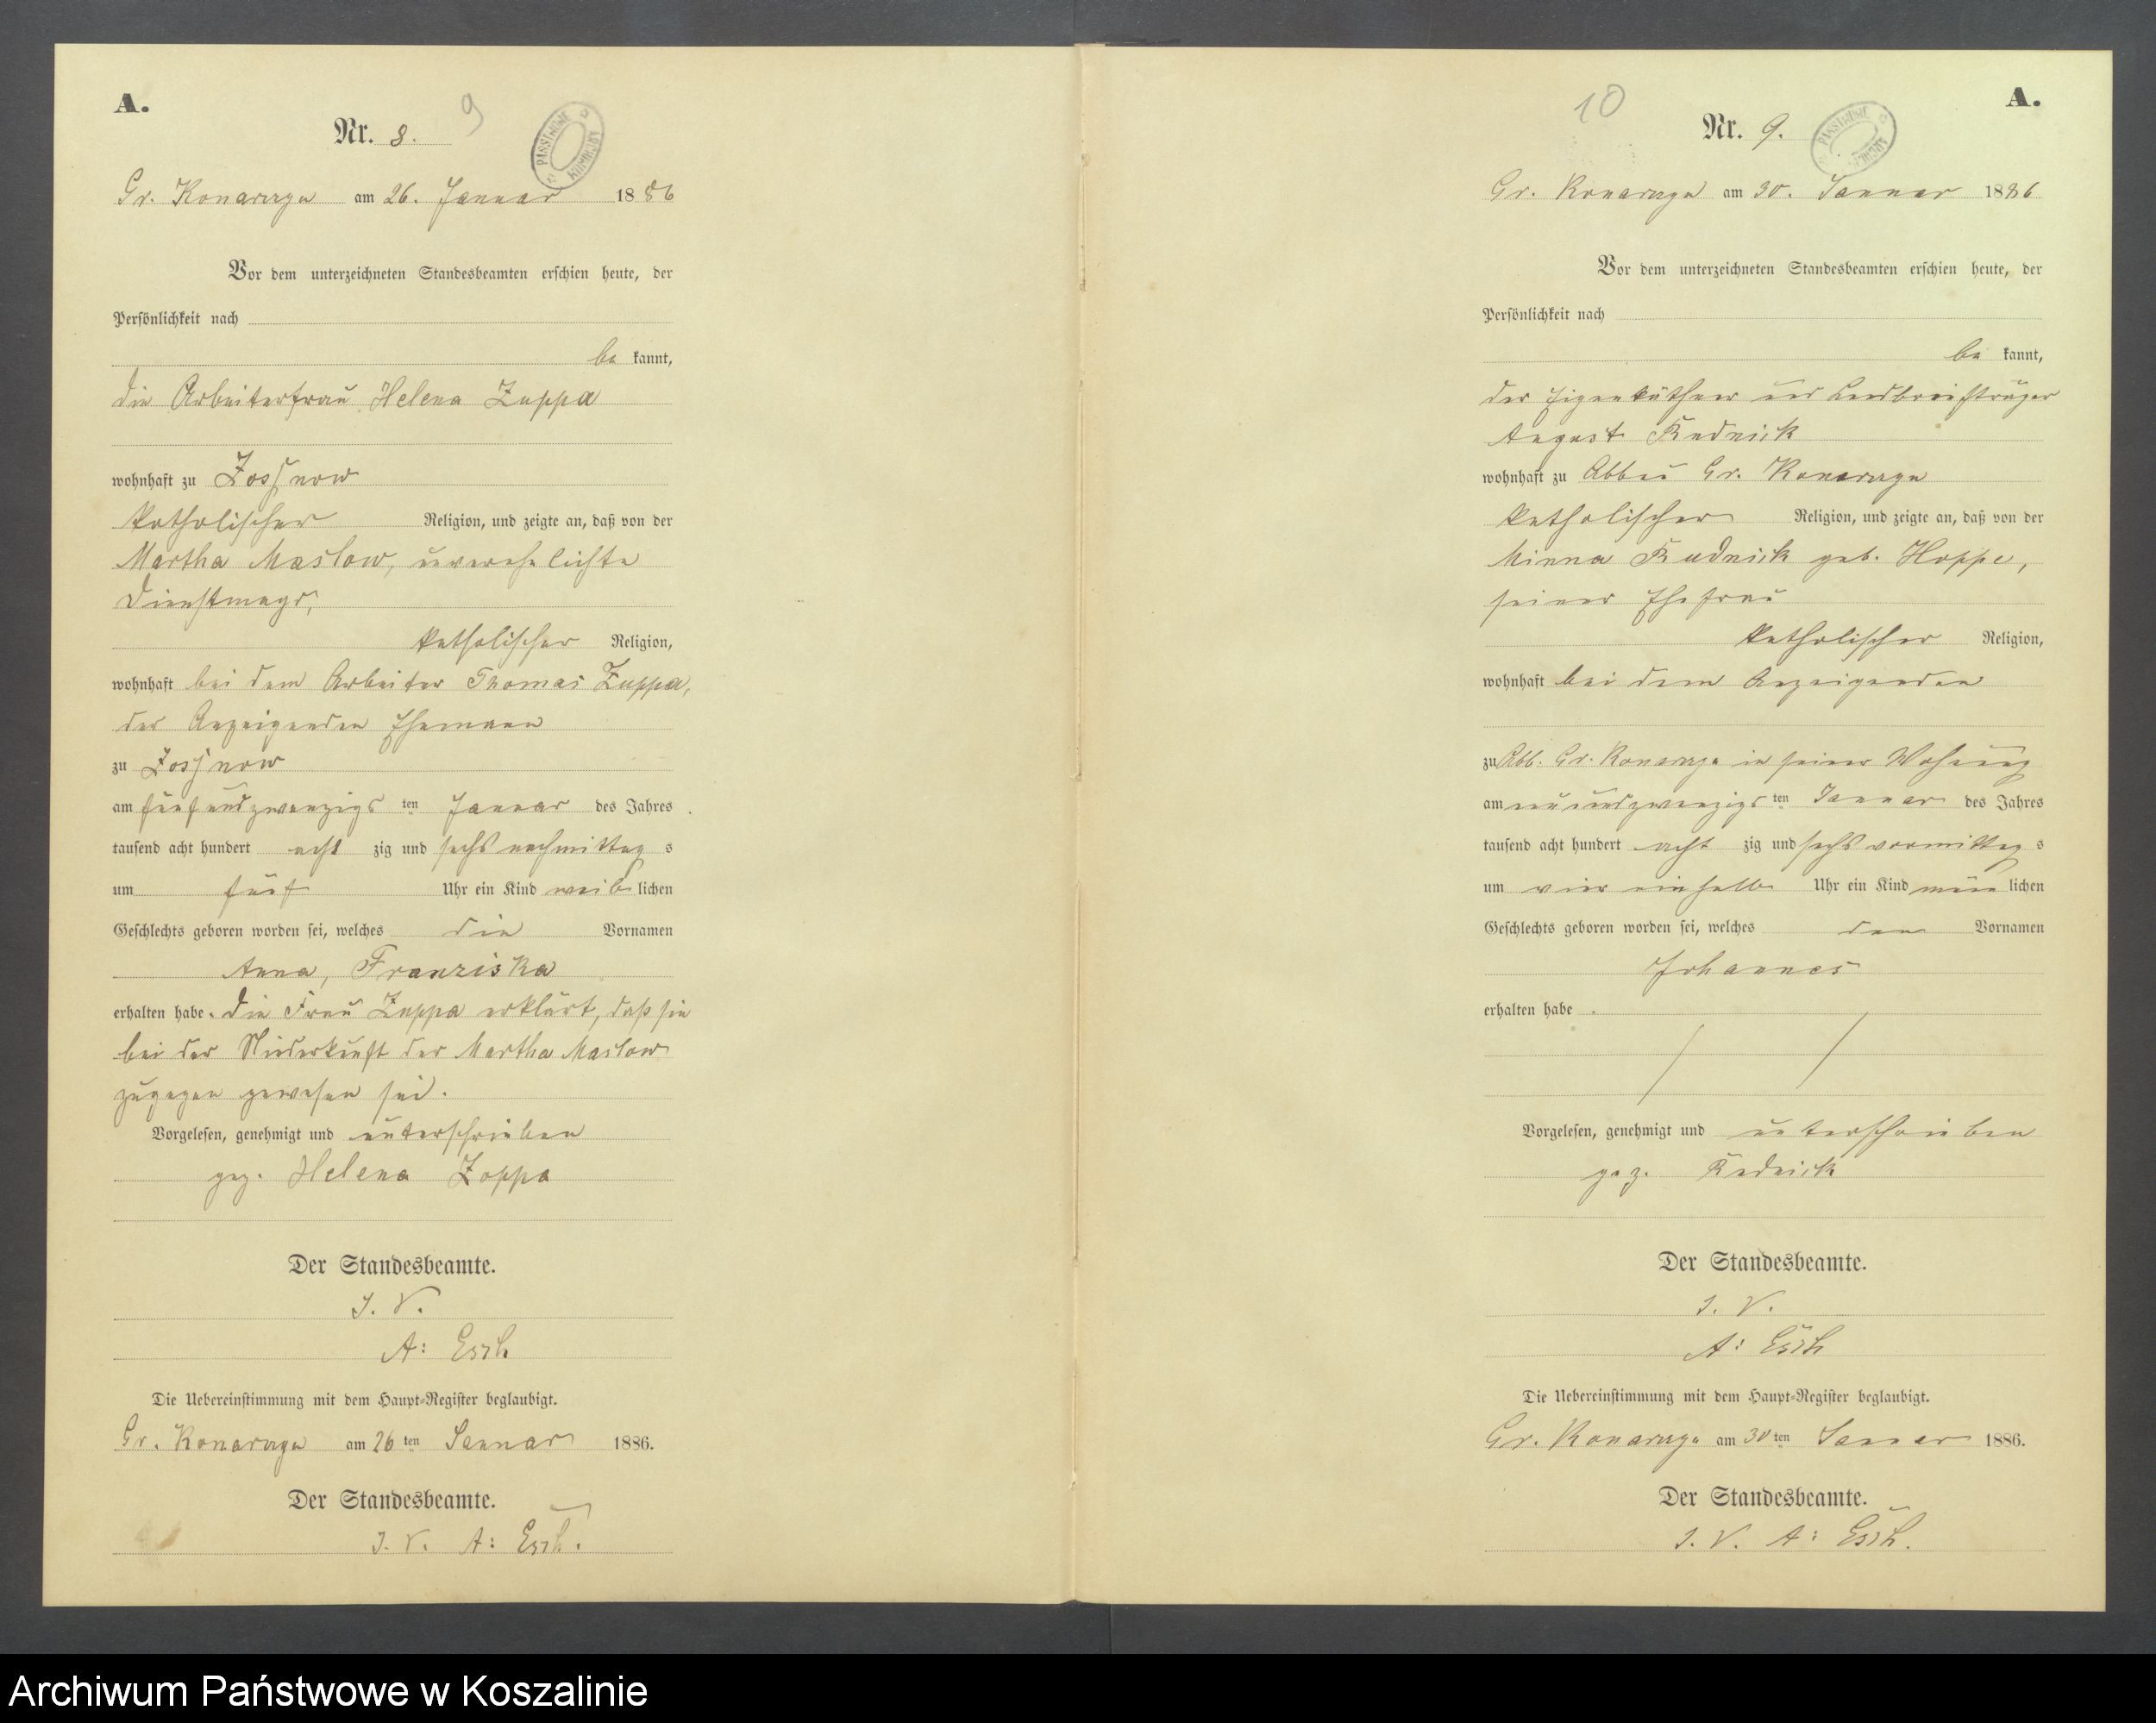 A.
Nr. 8.
9
PAŃSTWOWE ARCHIWUM
Gr. Konarczyn am 26. Januar 1886
Vor dem unterzeichneten Standesbeamten erschien heute, der
Persönlichkeit nach
be kannt,
die Arbeiterfrau Helena Zuppa
wohnhaft zu Zossnow
katholischer Religion, und zeigte an, daß von der
Martha Maslow, unverehelichte
Dienstmagd,
katholischer Religion,
wohnhaft bei dem Arbeiter Thomas Zuppa,
der Anzeigenden Ehemann
zu Zossnow
am fünfundzwanzigs ten Januar des Jahres
tausend acht hundert acht zig und sechs nachmittag s
um fünf Uhr ein Kind weib lichen
Geschlechts geboren worden sei, welches die Vornamen
Anna, Franziska
erhalten habe. Die Frau Zuppa erklärt, daß sie
bei der Niederkunft der Martha Maslow
zugegen gewesen sei.
Vorgelesen, genehmigt und unterschrieben
gez. Helena Zoppa
Der Standesbeamte.
I. V.
A: Esch
Die Uebereinstimmung mit dem Haupt-Register beglaubigt.
Gr. Konarczyn am 26 ten Januar 1886.
Der Standesbeamte.
I. V. A: Esch.
10
A.
Nr. 9.
PAŃSTWOWE ARCHIWUM
Gr. Konarczyn am 30. Januar 1886
Vor dem unterzeichneten Standesbeamten erschien heute, der
Persönlichkeit nach
be kannt,
der Eigenkäthner und Landbriefträger
August Rudnick
wohnhaft zu Abbau Gr. Konarczyn
katholischer Religion, und zeigte an, daß von der
Minna Rudnick geb. Hoppe,
seiner Ehefrau
katholischer Religion,
wohnhaft bei dem Anzeigenden
zu Abb. Gr. Konarczyn in seiner Wohnung
am neunundzwanzigs ten Januar des Jahres
tausend acht hundert acht zig und sechs vormittag s
um vier einhalb Uhr ein Kind männ lichen
Geschlechts geboren worden sei, welches den Vornamen
Johannes
erhalten habe.
Vorgelesen, genehmigt und unterschrieben
gez. Rudnick
Der Standesbeamte.
I. V.
A: Esch
Die Uebereinstimmung mit dem Haupt-Register beglaubigt.
Gr. Konarczyn am 30 ten Januar 1886.
Der Standesbeamte.
I. V. A: Esch.
Archiwum Państwowe w Koszalinie